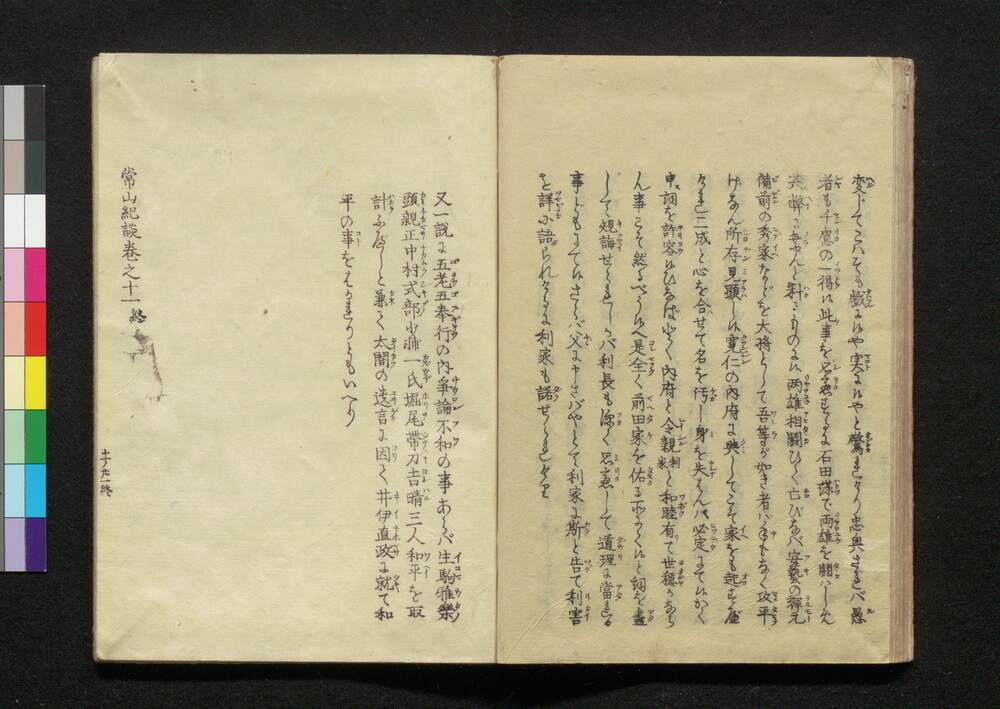 変じてこハそも戯にや実にやと驚れけり忠興されバ愚
者も千慮の一得に此事を思慮するに石田謀て両雄を闘ハしめん
其弊に乗んと計るものに両雄相闘ひ亡びなバ安藝の輝元
備前の秀家などを大将として吾等が如き者ハ手もなく攻平
げなん所存見顕し寛仁の内府に與してこそ家をも起すべ
三成と心を合せて名を汚し身を失はん必定にてかく
申詞を許容ひなば内府と全親利家と和睦有て世穏かなら
ん事こそ然るべう是全く前田家を佑る詞を盡
して規諫せられしかバ利長も深く思慮して道理に當れる
事どもにてさらバ父に申さバやとて利家に斯と告て利害
を詳に語られけるに利家も諾せられけり
又一説に五老五奉行の内爭論不和の事あらバ生駒雅樂
頭親正中村式部少輔一氏堀尾帶刀吉晴三人和平を取
計ふべしと兼て太閤の遺言に因て井伊直政に就て和
平の事をはかれりともいへり
常山紀談巻之十一終
十一ノ九一終